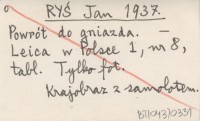 RYŚ Jan 1937.
Powrót do gniazda. –
Leica w Polsce 1, nr 8,
tabl. Tylko fot.
Krajobraz z samolotem.
BJ/043/0331